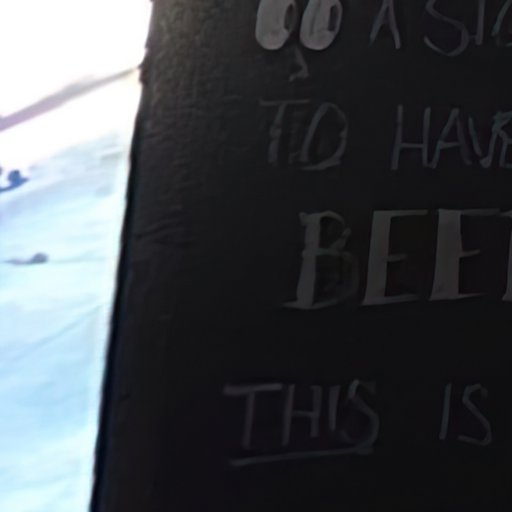 A
TO HAVE
BEE
THIS IS